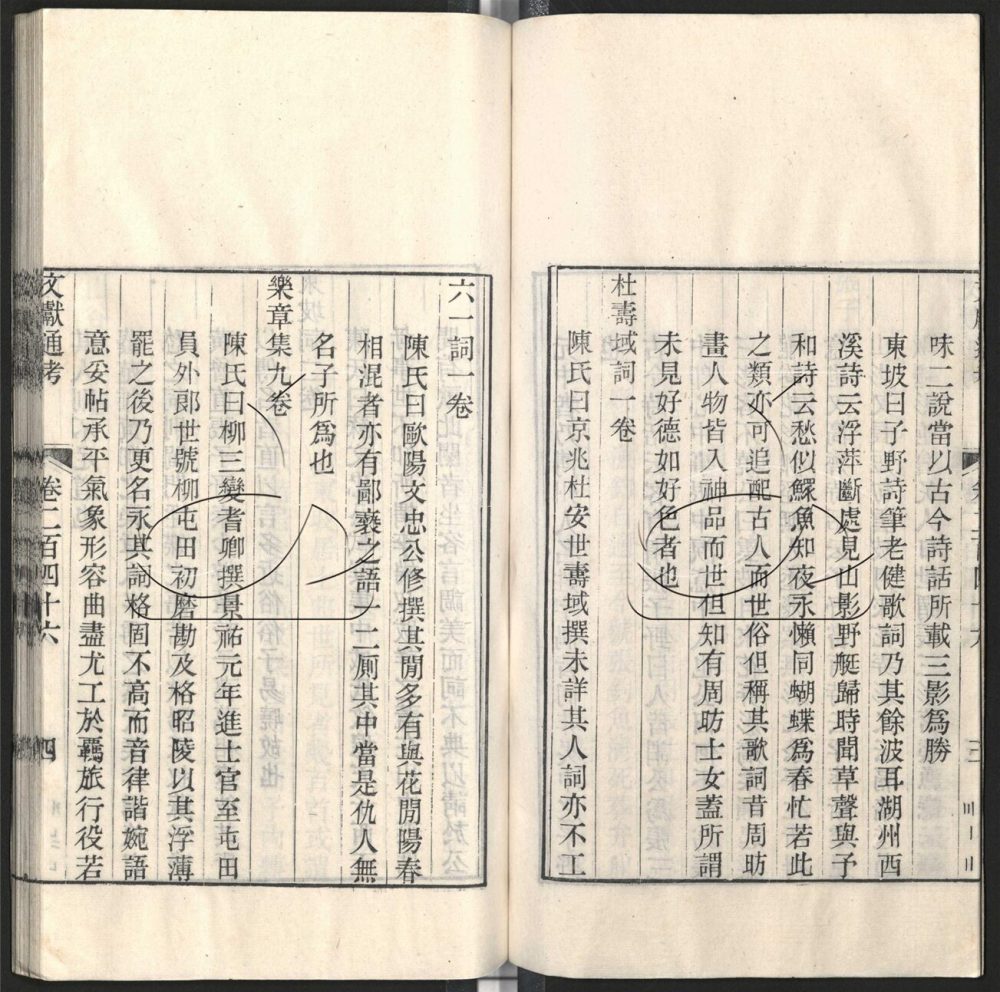 味二說當以古今詩話所載三影爲勝
東坡曰子野詩筆老健歌詞乃其餘波耳湖州西
溪詩云浮萍斷處見山影野艇歸時聞草聲與予
和詩云愁似鰥魚知夜永懶同蝴蝶爲春忙若此
之類亦可追配古人而世俗但稱其歌詞昔周昉
畫人物皆入神品而世但知有周昉士女蓋所謂
未見好德如好色者也
杜壽域詞一卷
陳氏曰京兆杜安世壽域撰未詳其人詞亦不工
六一詞一卷
陳氏曰歐陽文忠公修撰其閒多有與花閒陽春
相混者亦有鄙褻之語一二厠其中當是仇人無
名子所爲也
樂章集九卷
陳氏曰柳三變耆卿撰景祐元年進士官至屯田
員外郞世號柳屯田初磨勘及格昭陵以其浮薄
罷之後乃更名永其詞格固不高而音律諧婉語
意妥帖承平氣象形容曲盡尤工於羈旅行役若
文獻通考 卷二百四十六 四